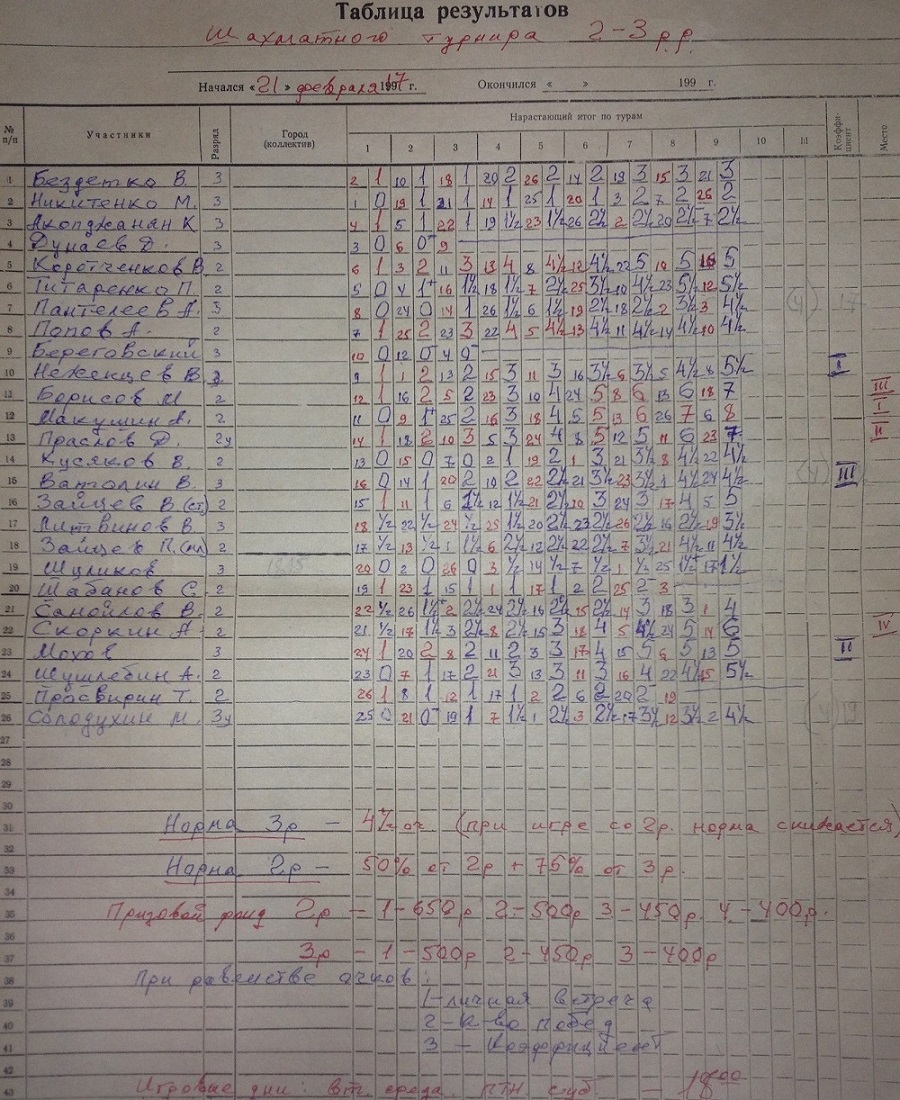 Таблица результатов
Шахматного турнира 2-3 р.р.
Начался «21» февраля 1997 г. Окончился « » 199 г.
№ п/п Участники Разряд Город (коллектив) Нарастающий итог по турам Коэффициент Место
1 2 3 4 5 6 7 8 9 10 11
1 Бездетко В. 3 2 1 10 1 18 1 20 2 26 2 14 2 19 3 15 3 21 3
2 Никитенко М. 3 1 0 19 1 21 1 14 1 25 1 20 1 3 2 7 2 26 2
3 Акопджанян К 3 4 1 5 1 22 1 19 1½ 23 1½ 26 2½ 2 2½ 20 2½ 7 2½
4 Дунаев Д. 3 3 0 6 0 9
5 Коротченков В. 2 6 1 3 2 11 3 13 4 8 4½ 12 4½ 22 5 10 5 16 5
6 Титаренко П. 2 5 0 4 1+ 16 1½ 18 1½ 7 2½ 25 3½ 10 4½ 23 5½ 12 5½
7 Пантелеев А. 3 8 0 24 0 14 1 26 1½ 6 1½ 19 2½ 18 2½ 2 3½ 3 4½
8 Попов А. 2 7 1 25 2 23 3 22 4 5 4½ 13 4½ 11 4½ 14 4½ 10 4½
9 Береговский 3 10 0 12 0 4 0
10 Неженцев В. 3 9 1 1 2 13 2 15 3 11 3 16 3½ 6 3½ 5 4½ 8 5½ I
11 Борисов М 2 12 1 16 2 5 2 23 3 10 4 24 5 8 6 13 6 18 7 III
12 Макушин А. 2 11 0 9 1+ 25 2 16 3 18 4 5 5 13 6 26 7 6 8 I
13 Праслов Д. 2у 14 1 18 2 10 3 5 3 24 4 8 5 12 5 11 6 23 7 II
14 Кусяков В. 2 13 0 15 0 7 0 2 1 19 2 1 3 21 3½ 8 4½ 22 4½
15 Ватолин В. 3 16 0 14 1 20 2 10 2 22 2½ 21 3½ 23 3½ 1 4½ 24 4½ III
16 Зайцев В (ст) 2 15 1 11 1 6 1½ 12 1½ 21 2½ 10 3 24 3 17 4 5 5
17 Литвинов В. 3 18 ½ 22 ½ 24 ½ 25 1½ 20 2½ 23 2½ 26 2½ 16 2½ 19 3½
18 Зайцев П. (мл) 2 17 ½ 13 ½ 1 1½ 6 2½ 12 2½ 22 2½ 7 3½ 21 4½ 11 4½
19 Шуликов 3 20 0 2 0 26 0 3 ½ 14 ½ 7 ½ 1 ½ 25 1½ 17 1½
20 Шабанов С. 2 19 1 23 1 15 1 1 1 17 1 2 2 25 2 3
21 Самойлов В. 2 22 ½ 26 1½ 2 2½ 24 2½ 16 2½ 15 2½ 14 3 18 3 1 4
22 Скоркин А. 2 21 ½ 17 1½ 3 2½ 8 2½ 15 3 18 4 5 4½ 24 5 14 6 IV
23 Мохов 3 24 1 20 2 8 2 11 2 3 3 17 4 15 5 6 5 13 5 II
24 Шушлебин А. 2 23 0 7 1 17 2 21 3 13 3 11 3 16 4 22 4½ 15 5½
25 Просвирин Т. 2 26 1 8 1 12 1 17 1 2 2 6 2 20 2 19
26 Солодухин М. 3у 25 0 21 0 19 1 7 1½ 1 2½ 3 2½ 17 3½ 12 3½ 2 4½
27
28
29
30
31 Норма 3р – 4½ оч. (при игре со 2р. норма снижается)
32
33 Норма 2р – 50% от 2р + 75% от 3р.
34
35 Призовой фонд 2р – 1-650р 2-500р 3-450р. 4-400р.
36
37 3р – 1-500р 2-450р 3-400р
38 При равенстве очков:
39 1-личная встреча
40 2-к-во побед
41 3 – коэффициент
42
43 Игровые дни: вт. среда ПТН суб. –